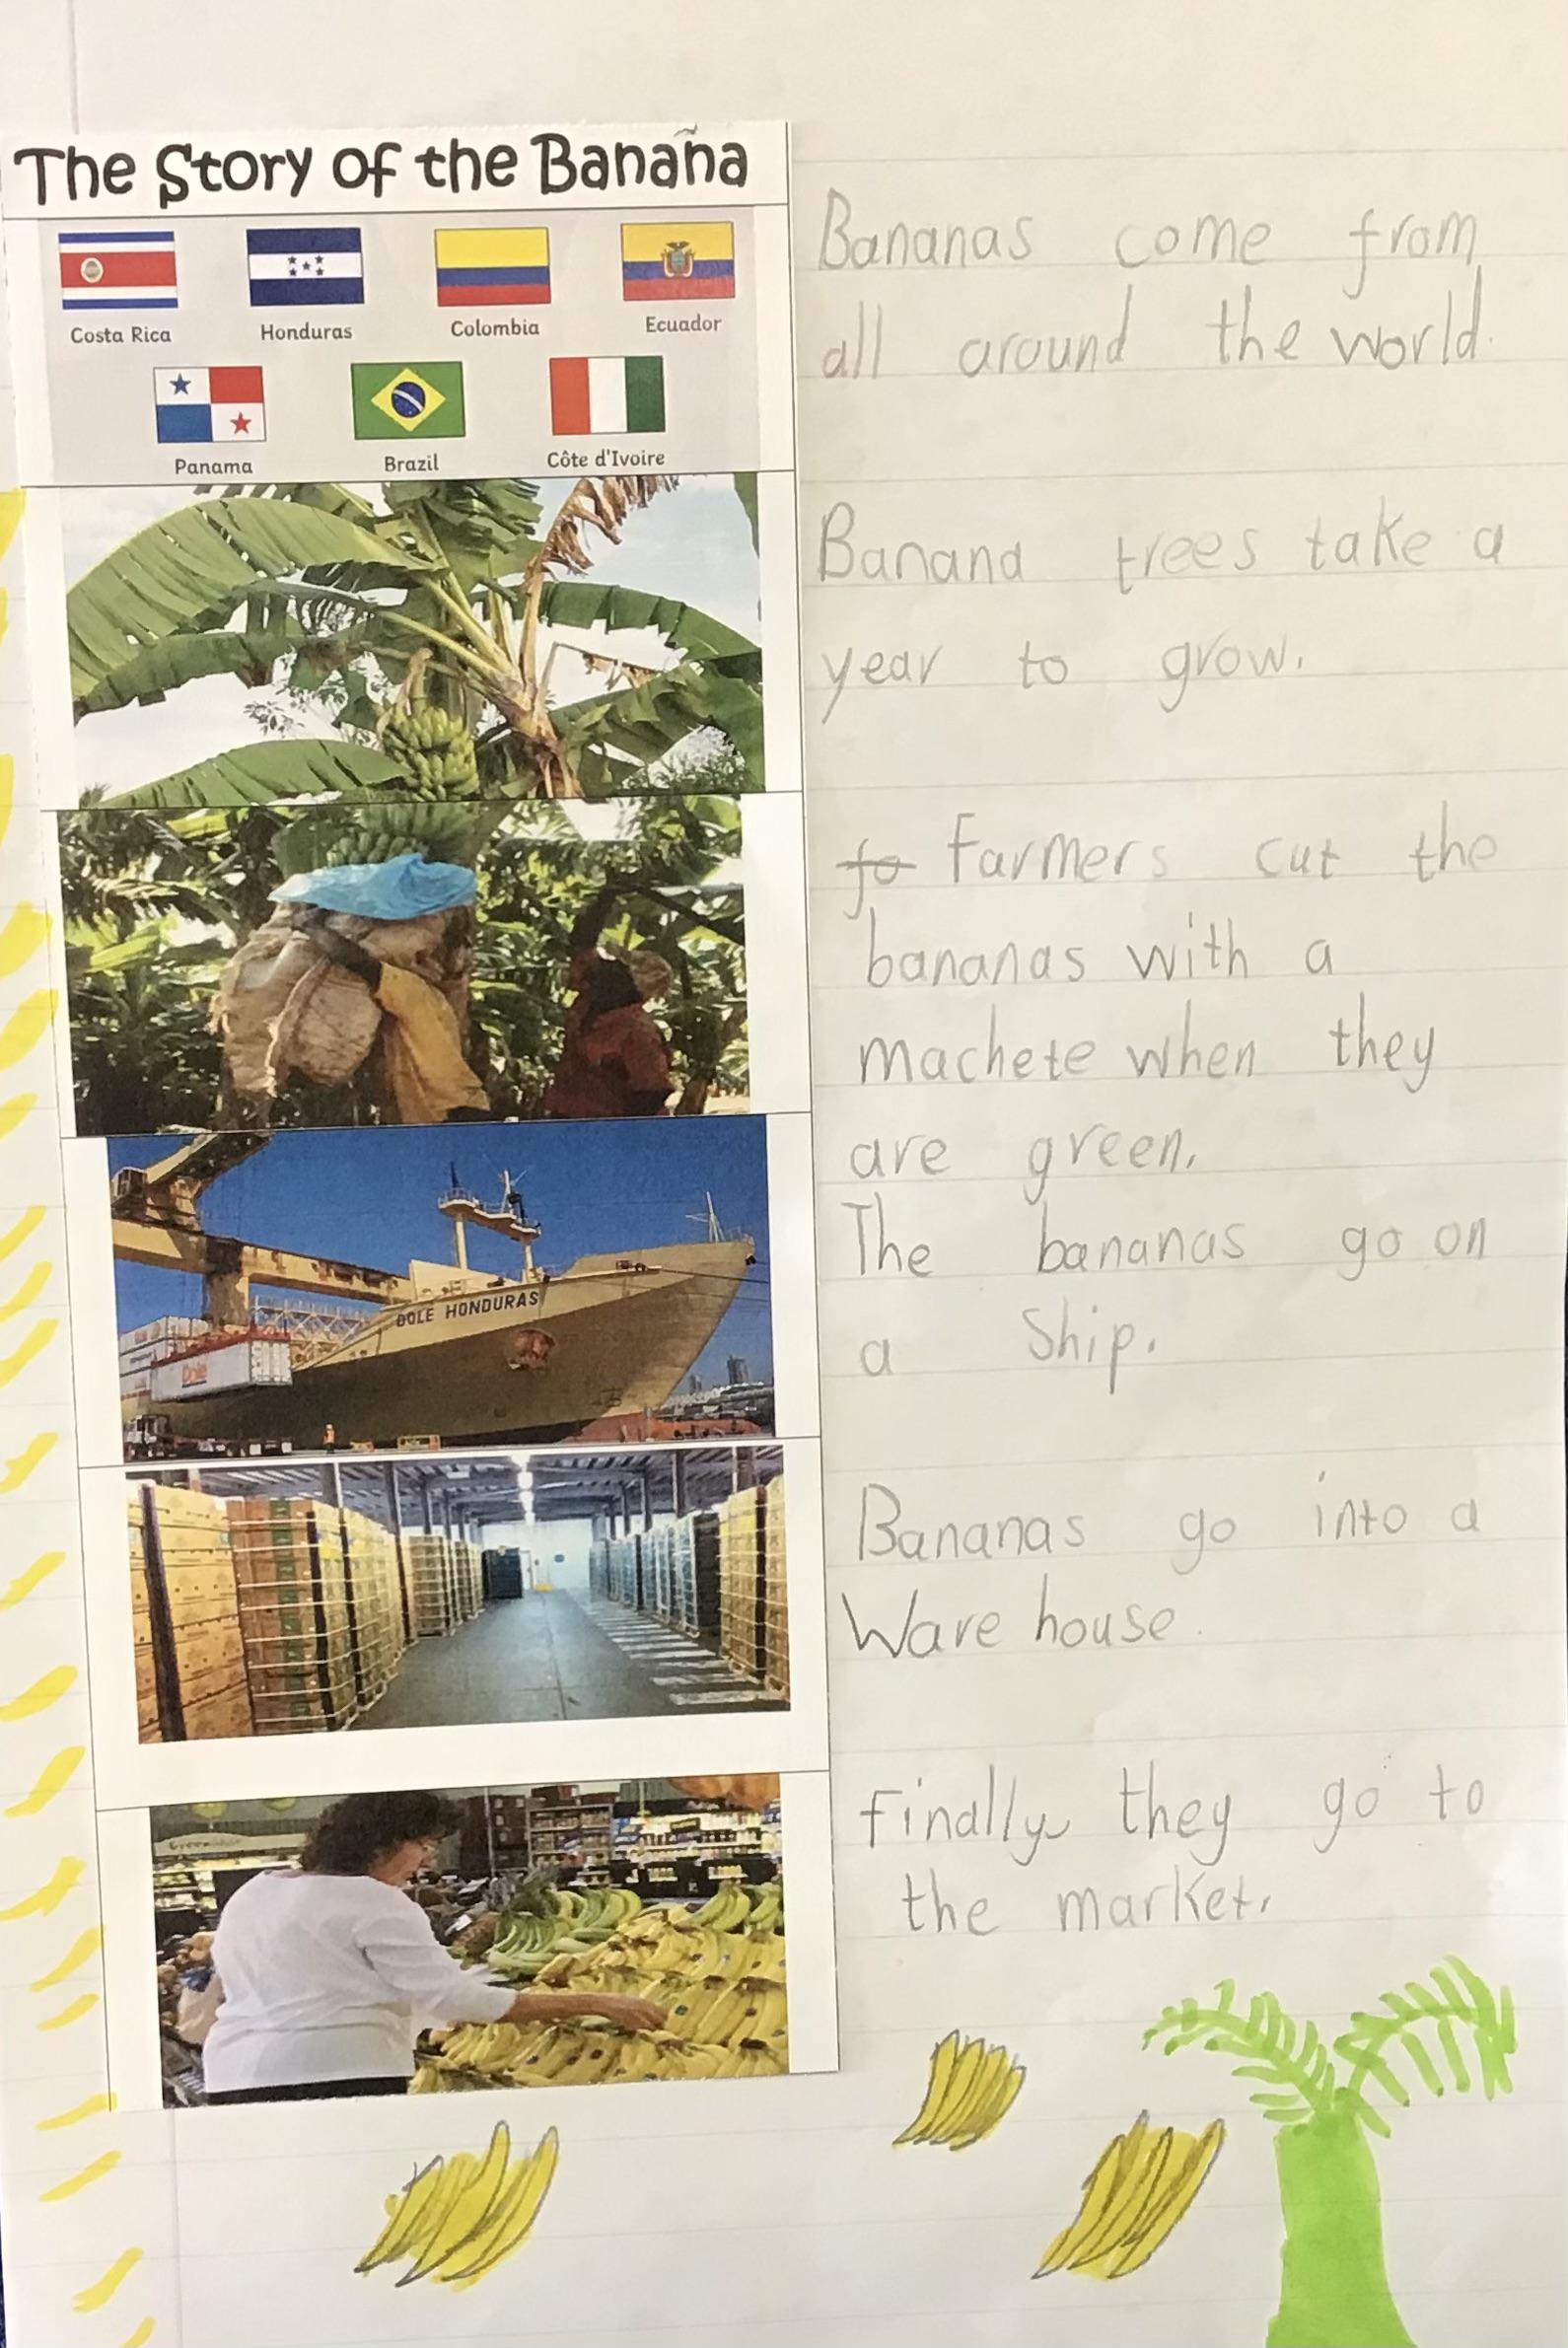 The Story of the Banana
Costa Rica
Honduras
Colombia
Ecuador
Panama
Brazil
Côte d'Ivoire
Bananas come from
all around the world.
Banana trees take a
year to grow.
fo Farmers cut the
bananas with a
machete when they
are green.
The bananas go on
a Ship.
DOLE HONDURAS
Dole
Bananas go into a
Ware house.
Finally, they go to
the market.